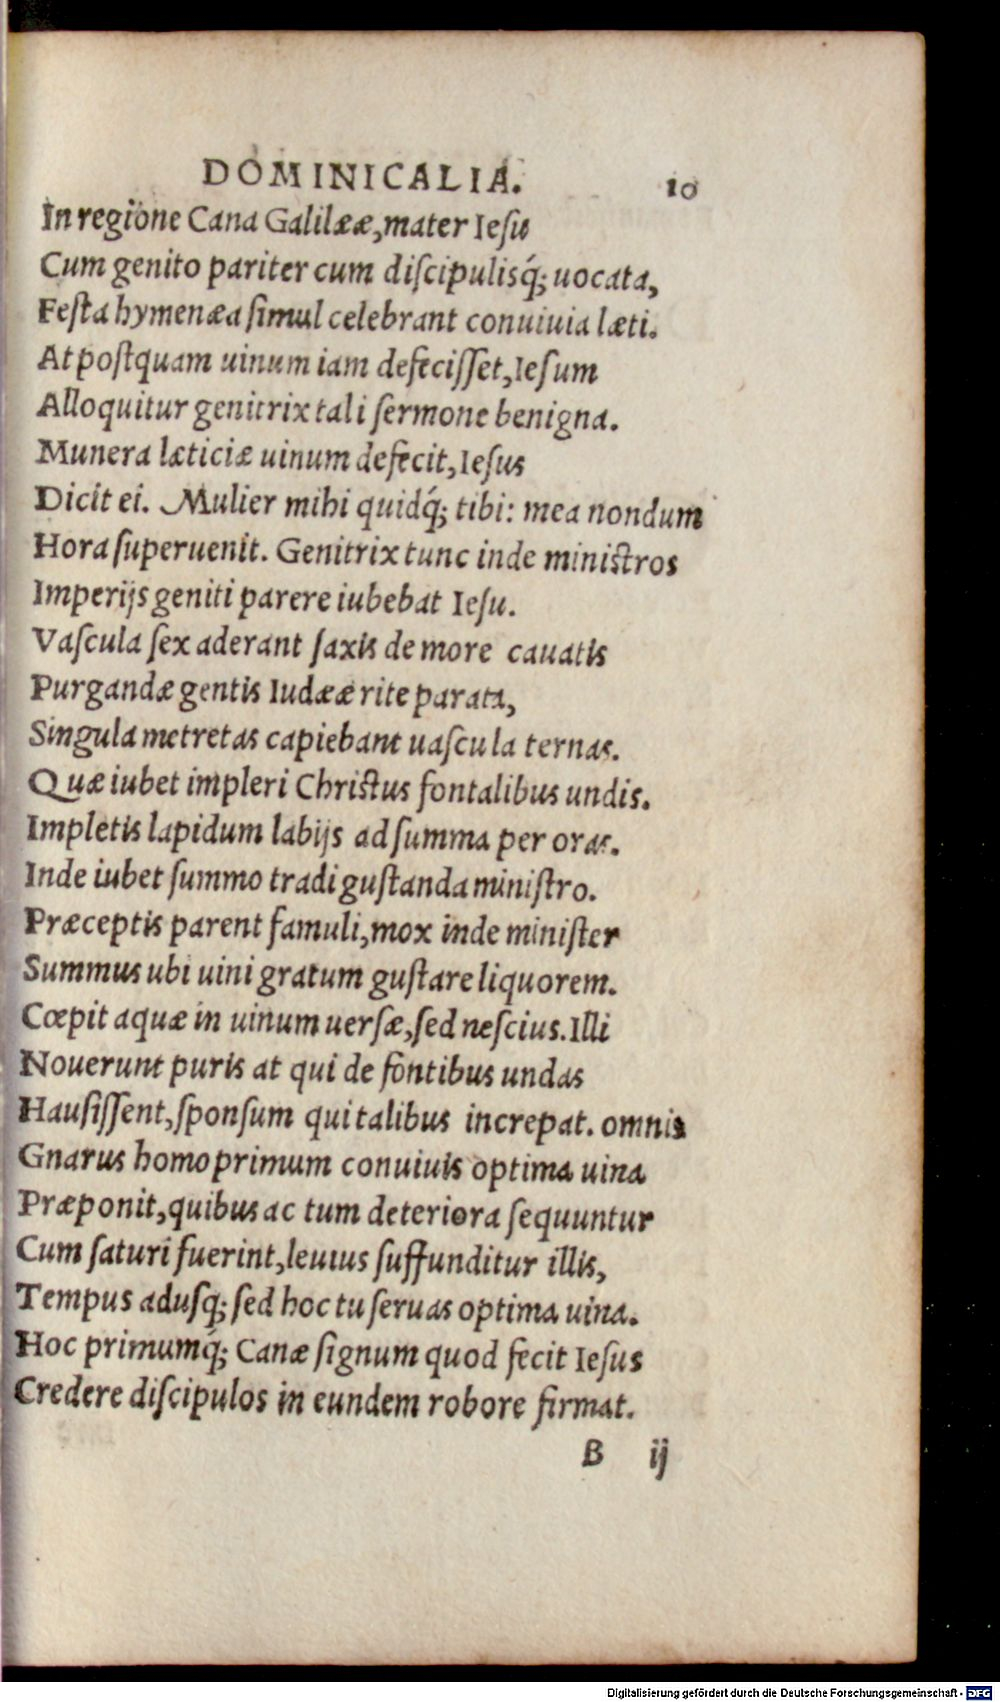 DOMINICALIA. 10
In regione Cana Galilææ, mater Iesu
Cum genito pariter cum diſcipulisq́; uocata,
Feſta hymenæa ſimul celebrant conuiuia læti.
At poſtquam uinum iam defeciſſet, Ieſum
Alloquitur genitrix tali ſermone benigna.
Munera læticiæ uinum defecit, Ieſus
Dicit ei. Mulier mihi quidq́; tibi: mea nondum
Hora ſuperuenit. Genitrix tunc inde miniſtros
Imperijs geniti parere iubebat Ieſu.
Vaſcula ſex aderant ſaxis de more cauatis
Purgandæ gentis Iudææ rite parata,
Singula metretas capiebant uaſcula ternas.
Quæ iubet impleri Chriſtus fontalibus undis.
Impletis lapidum labijs ad ſumma per oras.
Inde iubet ſummo tradi guſtanda miniſtro.
Præceptis parent famuli, mox inde miniſter
Summus ubi uini gratum guſtare liquorem.
Cœpit aquæ in uinum uerſæ, ſed neſcius. Illi
Nouerunt puris at qui de fontibus undas
Hauſiſſent, ſponſum qui talibus increpat. omnis
Gnarus homo primum conuiuis optima uina
Præponit, quibus ac tum deteriora ſequuntur
Cum ſaturi fuerint, leuius ſuffunditur illis,
Tempus aduſq; ſed hoc tu ſeruas optima uina.
Hoc primumq́; Canæ ſignum quod fecit Ieſus
Credere diſcipulos in eundem robore firmat.
B ij
Digitalisierung gefördert durch die Deutsche Forschungsgemeinschaft - DFG